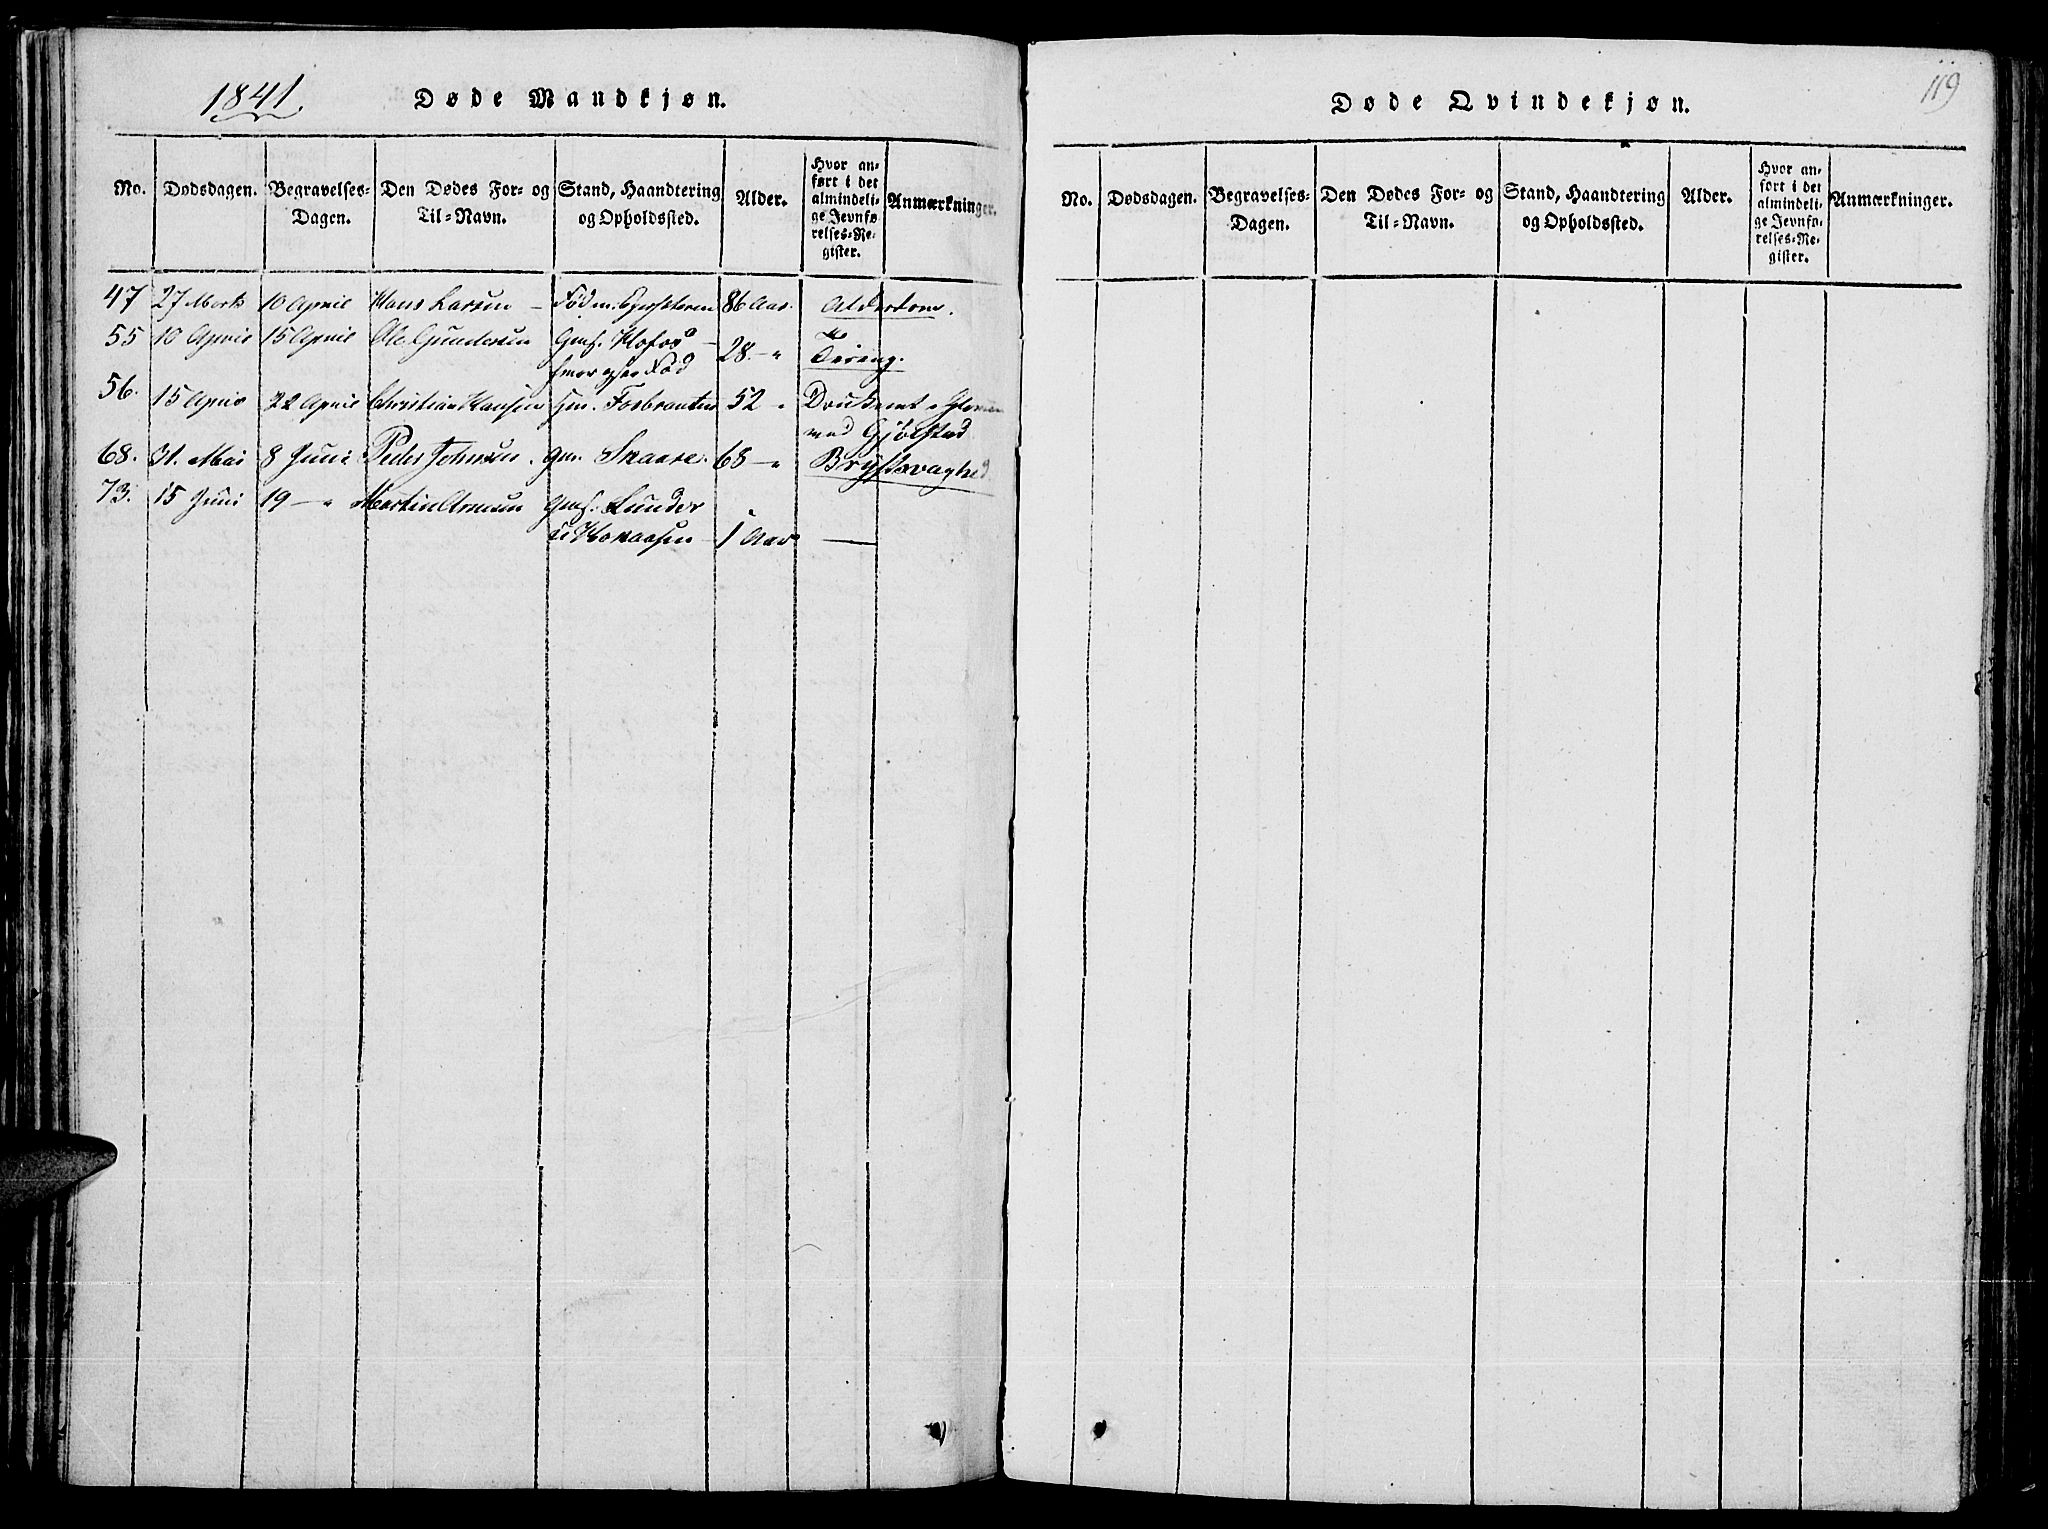 1841.
Døde Mandkjøn.
No.
Dødsdagen.
Begravelses-
Dagen.
Den Dødes For- og
Til-Navn.
Stand, Haandtering
og Opholdssted.
Alder.
Hvor an-
ført i det
almindeli-
ge Jevnfø-
relses-Re-
gister.
Anmærkninger.
47 27 Marts 10 April Hans Larsen - Fød 86 Aar. Alderdom.
55 10 April 15 April Ole Gundersen Hofos
28 - " Tæring.
56. 15 April 22 April Christian Hansen 52 " Druknet
ved Gjølstad
68. 31. Mai 8 Juni Peder Johnsen. Skaare. 68 - " Brystsvaghed
73. 15 Juni 19 - " Martin Sunder
1 Aar —
119
Døde Qvindekjøn.
No.
Dødsdagen.
Begravelses-
Dagen.
Den Dødes For- og
Til-Navn.
Stand, Haandtering
og Opholdssted.
Alder.
Hvor an-
ført i det
almindeli-
ge Jevnfø-
relses-Re-
gister.
Anmærkninger.